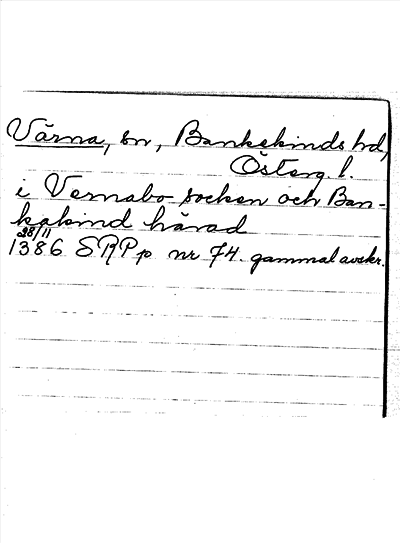 Värna, sn, Bankekinds hd,
Österg. l.
i Vernabo socken och Ban-
kakind härad
28/11
1386 SRPp nr 74. gammal avskr.